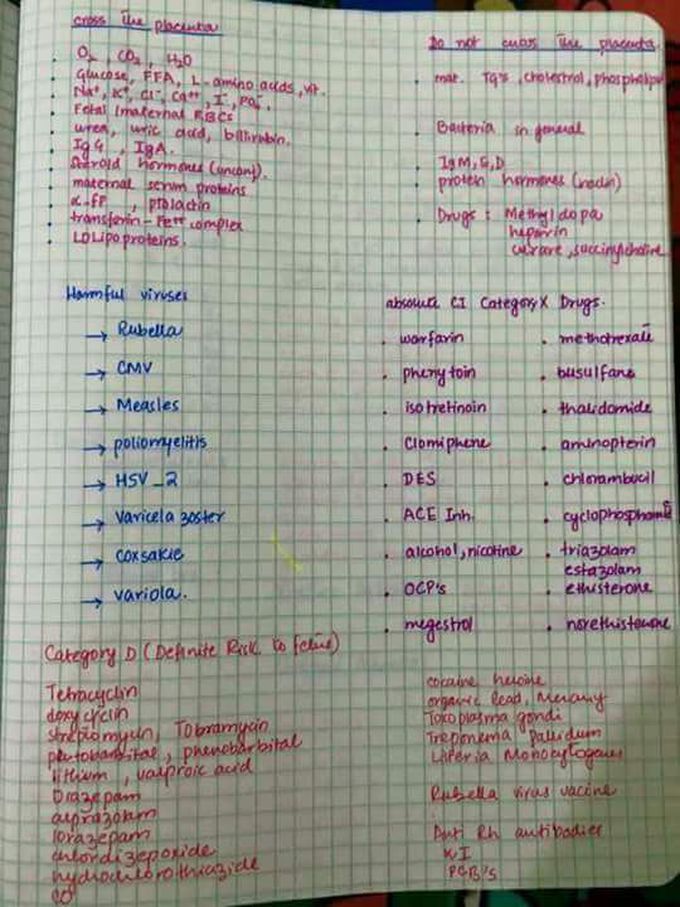 cross The placenta
O2, CO2, H2O
glucose, FFA, L-amino acids, vit.
Na+, K+, Cl-, Ca++, I-, PO4-,
Fetal/maternal RBCs
urea, uric acid, billirubin.
IgG, IgA.
Steroid hormones (unconj).
maternal serum proteins
α-FP, prolactin
transferin-Fe++ complex
LDLipoproteins.
Do not cross The placenta
mat. TG's, cholestrol, phospholipi
Bacteria in general
IgM, E, D
protein hormones (insulin)
Drugs: Methyldopa
heparin
curare, succinylcholine
Harmful viruses
→ Rubella
→ CMV
→ Measles
→ poliomyelitis
→ HSV_2
→ varicela zoster
→ coxsakie
→ variola.
absolute CI Category X Drugs.
warfarin
phenytoin
isotretinoin
Clomiphene
DES
ACE Inh.
alcohol, nicotine
OCP's
megestrol
methotrexate
busulfans
thalidomide
aminopterin
chlorambucil
cyclophosphamide
triazolam
estazolam
ethisterone
norethisterone
Category D (Definite Risk to fetus)
Tetracyclin
doxycyclin
streptomycin, Tobramycin
pentobarbital, phenobarbital
lithium, valproic acid
Diazepam
alprazolam
lorazepam
chlordizepoxide
hydrochlorothiazide
CO
cocaine heroine
organic lead, Mercury
Toxoplasma gondi
Treponema Pallidum
Listeria Monocytogenes
Rubella virus vaccine
Anti Rh antibodies
KI
PCB's